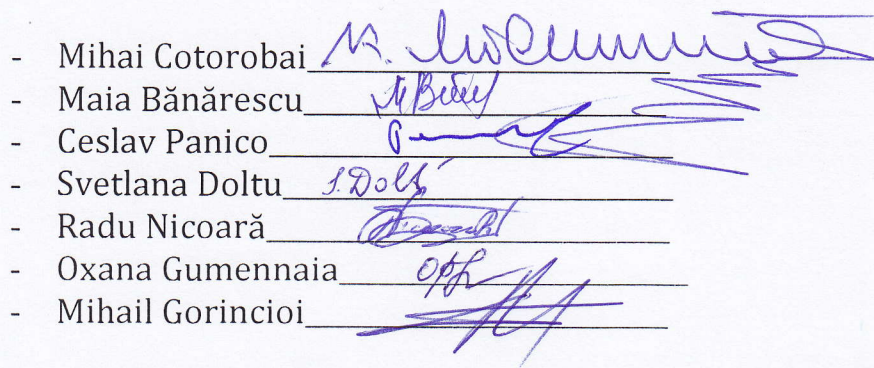 - Mihai Cotorobai
- Maia Bănărescu
- Ceslav Panico
- Svetlana Doltu S. Doltu
- Radu Nicoară
- Oxana Gumennaia
- Mihail Gorincioi